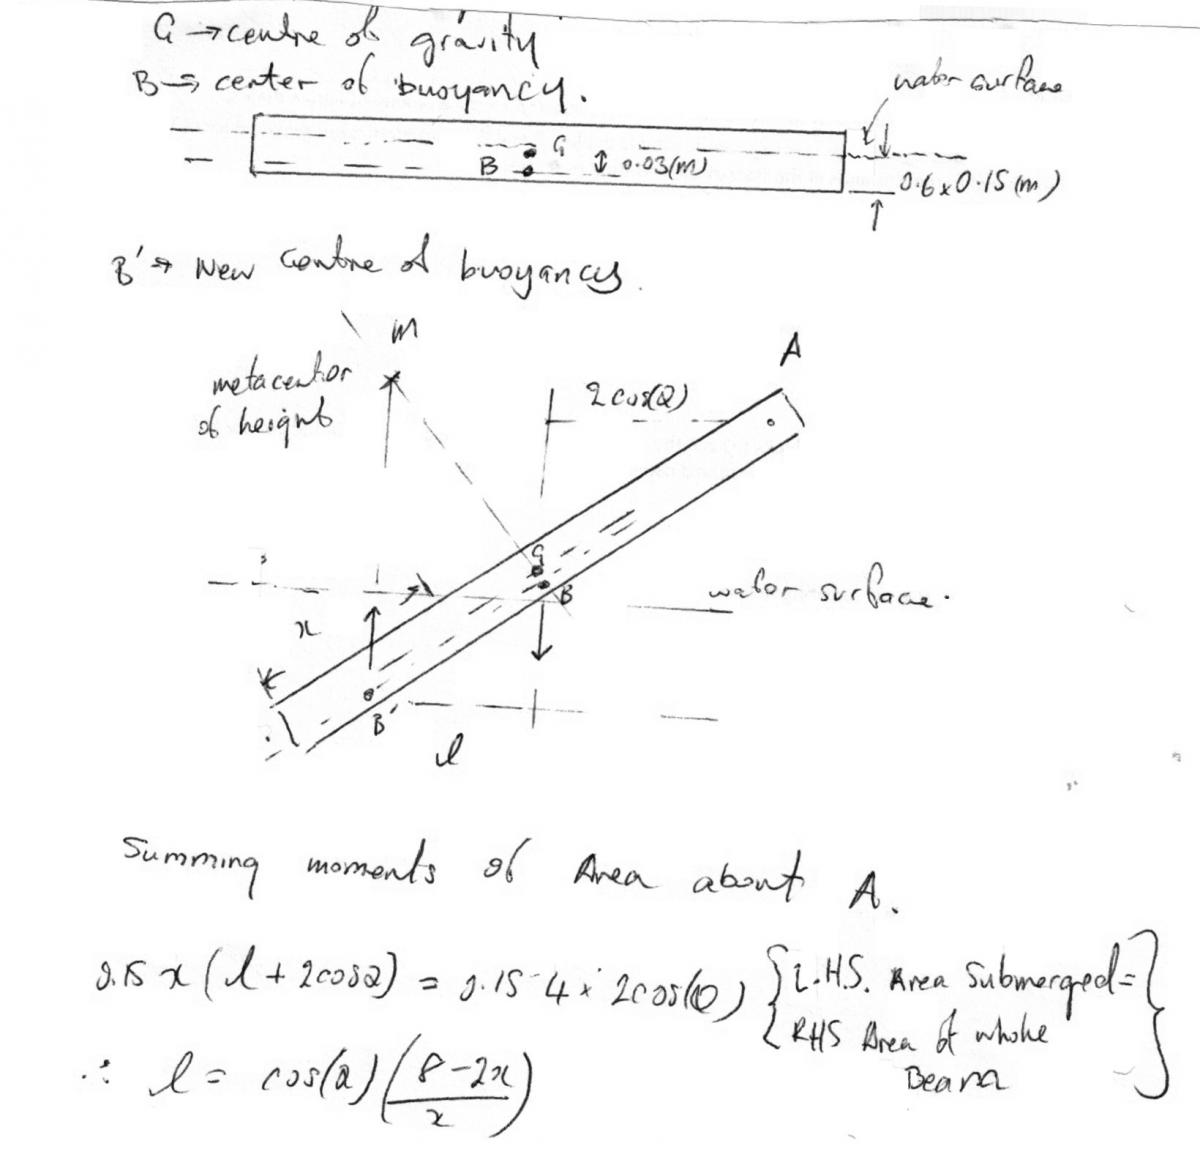 G → centre of gravity
B → center of buoyancy.
water surface
G
B
0.03(m)
0.6 x 0.15 (m)
B' → New Centre of buoyancy.
m
A
metacenter
of height
2 cos(Q)
G
B
water surface.
x
B'
l
Summing moments of Area about A.
0.15 x (l + 2cosQ) = 0.15 4 x 2cos(Q) { L.H.S. Area Submerged =
RHS Area of whole
Beam }
∴ l = cos(Q) (8-2x / x)